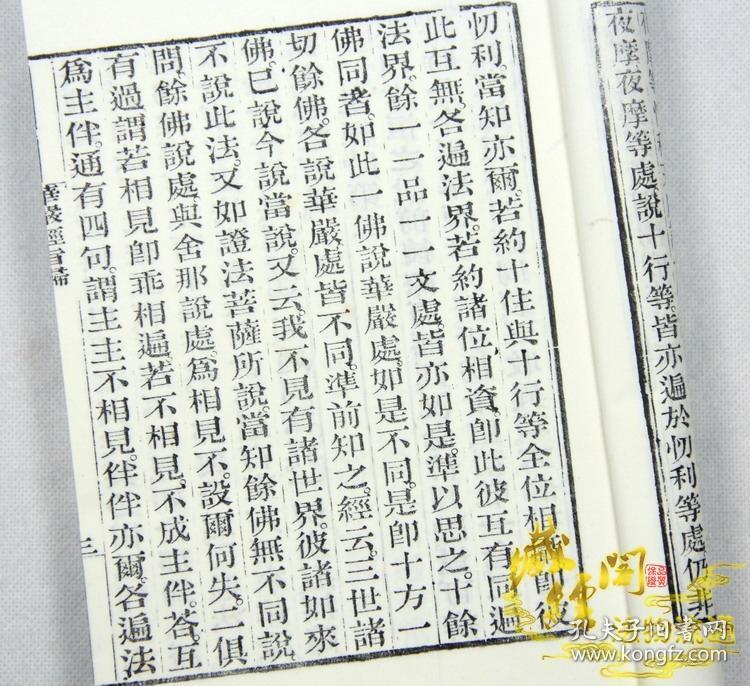 夜摩夜摩等處說十行等皆亦遍於忉利等處仍非
忉利。當知亦爾。若約十住與十行等全位相即彼
此互無。各遍法界。若約諸位相資即此彼互有同遍
法界。餘一一品一一文處。皆亦如是。準以思之。十餘
佛同者。如此一佛說華嚴處。如是不同。是即十方一
切餘佛。各說華嚴處皆不同。準前知之。經云。三世諸
佛。已說今說當說。又云。我不見有諸世界。彼諸如來
不說此法。又如證法菩薩所說。當知餘佛無不同說
問。餘佛說處。與舍那說處。為相見不。設爾何失。二俱
有過。謂若相見即乖相遍。若不相見。不成主伴。答。互
為主伴。通有四句。謂主主不相見。伴伴亦爾。各遍法
三
藏經閣
孔夫子旧书网
www.kongfz.com